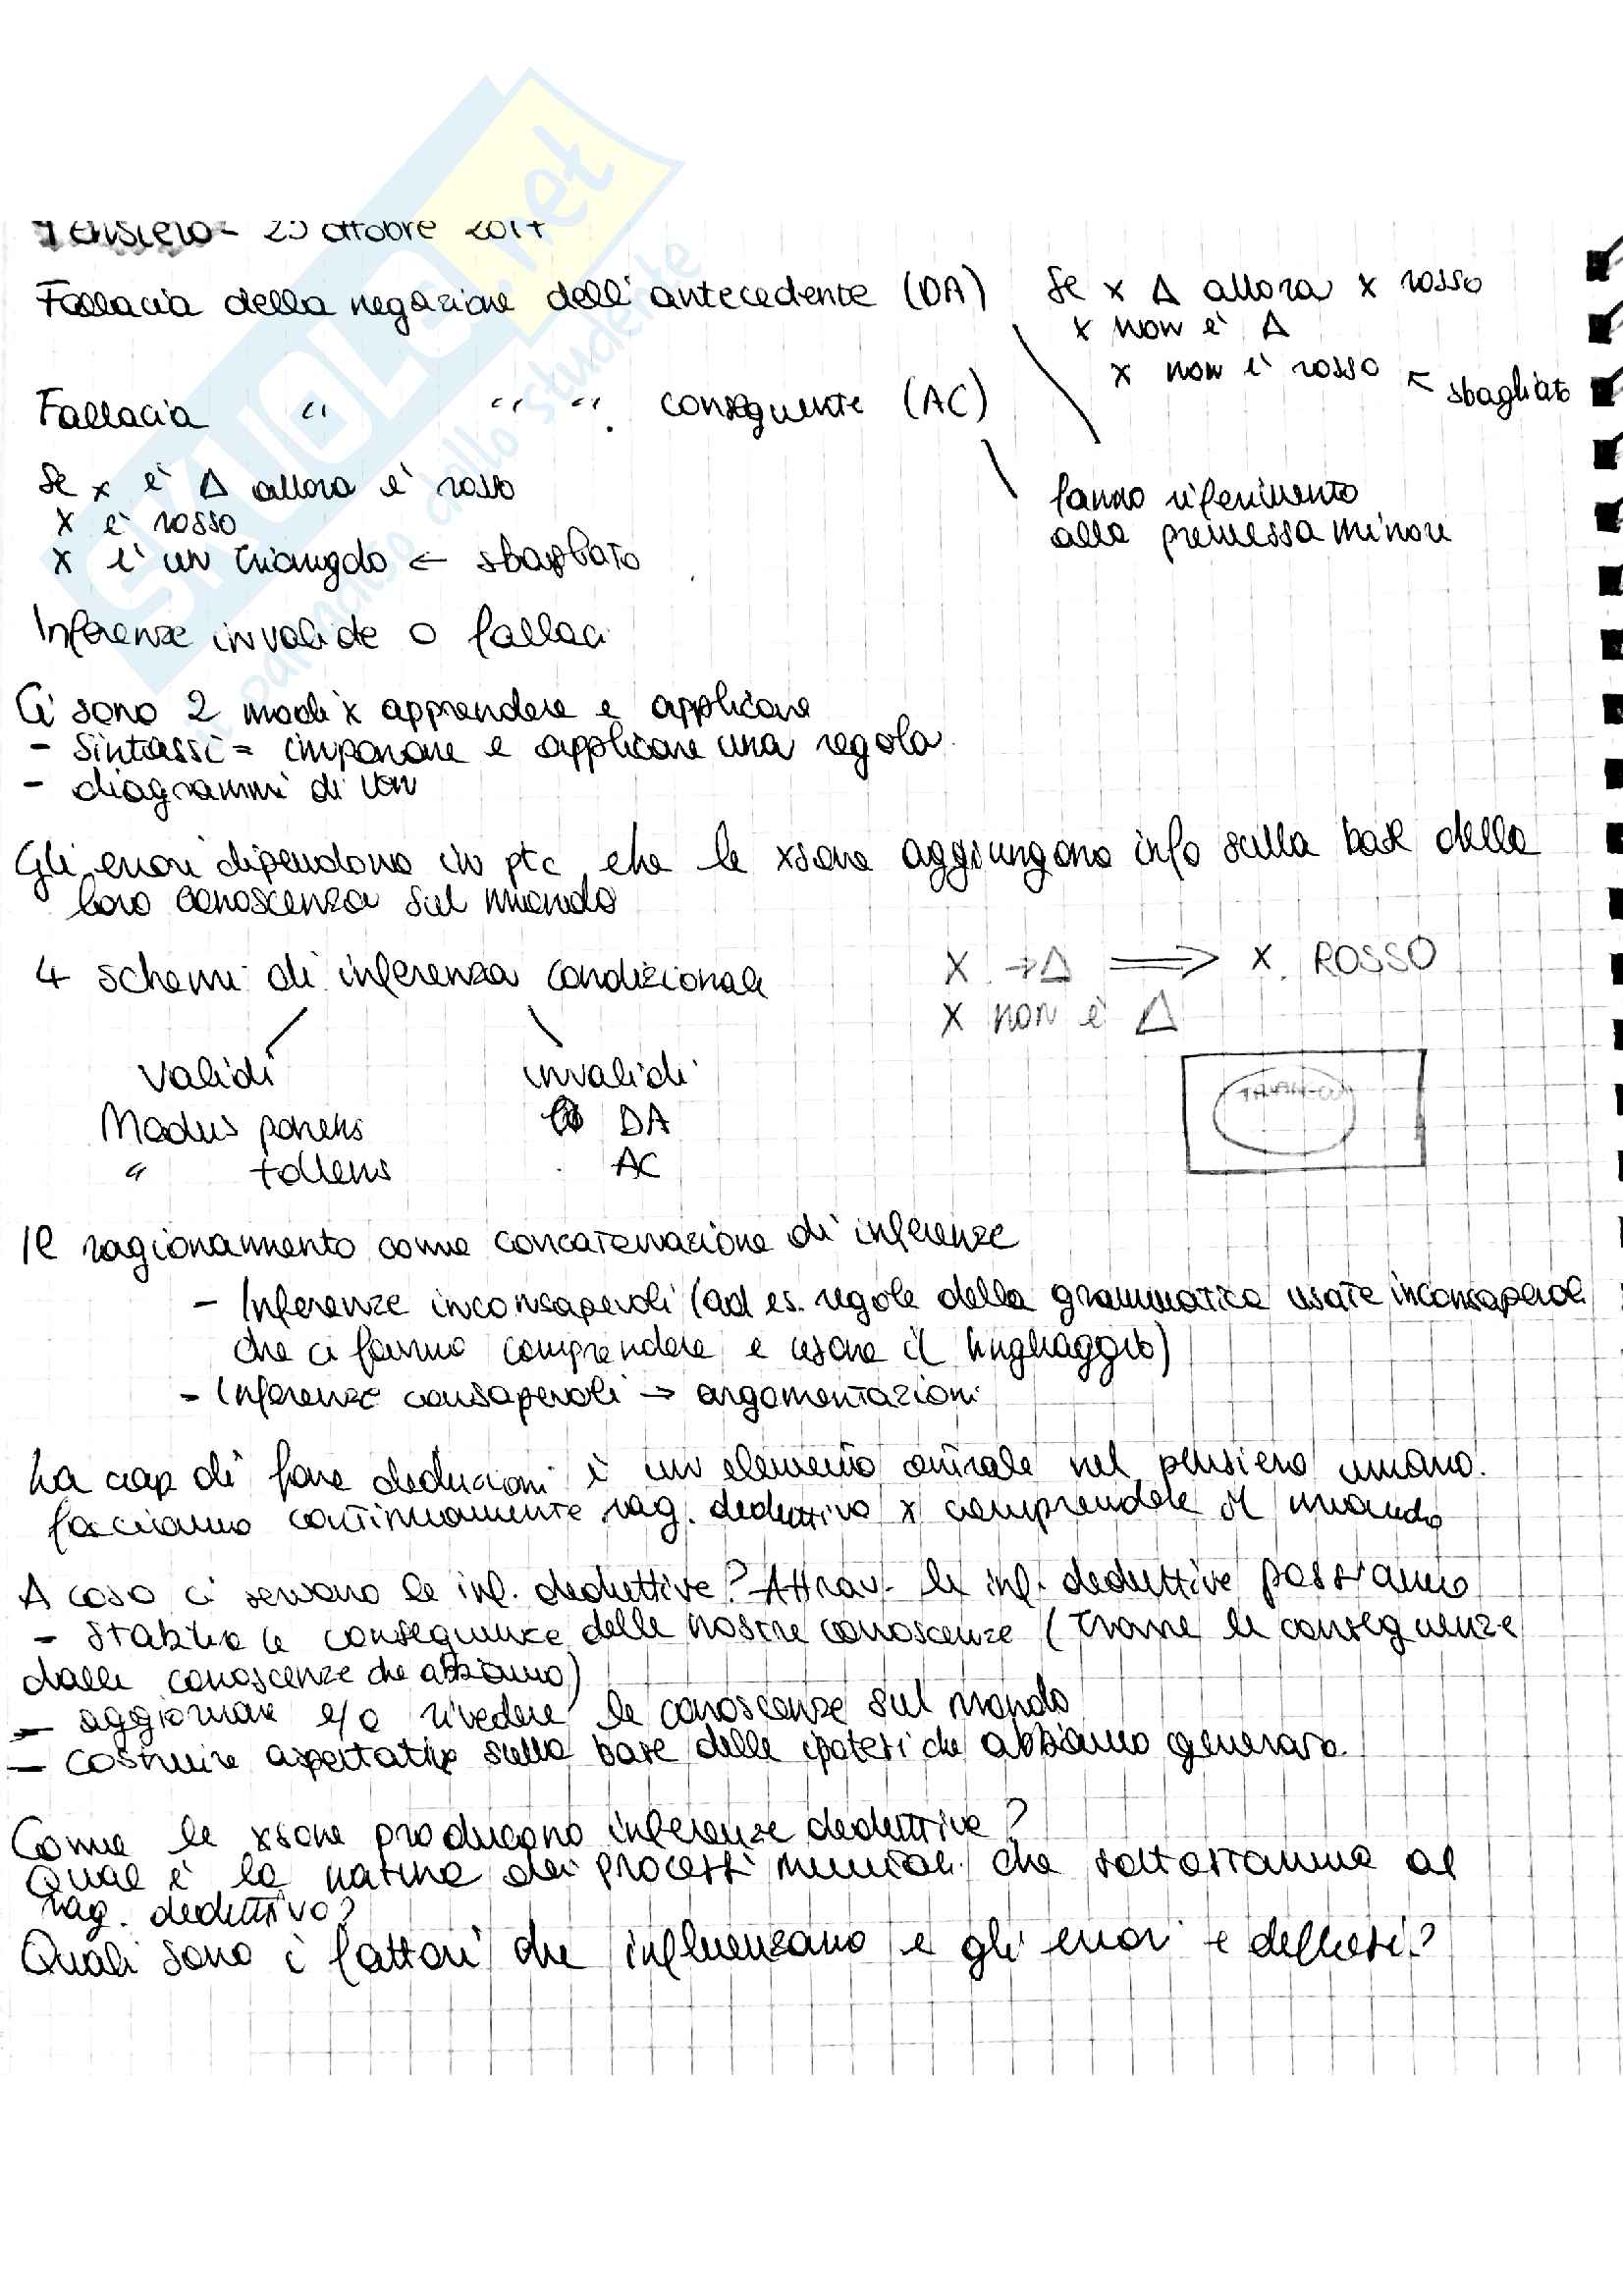 Pensiero - 25 ottobre 2017
Fallacia della negazione dell'antecedente (DA)
Se x Δ allora x rosso
x non è Δ
x non è rosso ← sbagliato
Fallacia " " " conseguente (AC)
fanno riferimento
alla premessa minore
Se x è Δ allora è rosso
x è rosso
x è un triangolo ← sbagliato
Inferenze invalide o fallaci
Ci sono 2 modi x apprendere e applicare
- sintassi = imparare e applicare una regola
- diagrammi di
Gli errori dipendono in ptc che le xsone aggiungono info sulla base della
loro conoscenza sul mondo
4 schemi di inferenza condizionale
validi invalidi
Modus ponens DA
" tollens AC
X → Δ ⟹ X ROSSO
X non è Δ
Il ragionamento come concatenazione di inferenze
- Inferenze inconsapevoli (ad es. regole della grammatica usate inconsapevol
che ci fanno comprendere e usare il linguaggio)
- Inferenze consapevoli → argomentazioni
La cap di fare deduzioni è un elemento centrale nel pensiero umano.
facciamo continuamente rag. deduttivo x comprendere il mondo
A cosa ci servono le inf. deduttive? Attrav. le inf. deduttive possiamo
- stabilire le conseguenze delle nostre conoscenze (trarre le conseguenze
dalle conoscenze che abbiamo)
- aggiornare e/o rivedere le conoscenze sul mondo
- costruire aspettative sulla base delle ipotesi che abbiamo generato.
Come le xsone producono inferenze deduttive?
Qual è la natura dei processi mentali che sottostanno al
rag. deduttivo?
Quali sono i fattori che influenzano e gli errori e
SKUOLA.net
il paradiso dello studente